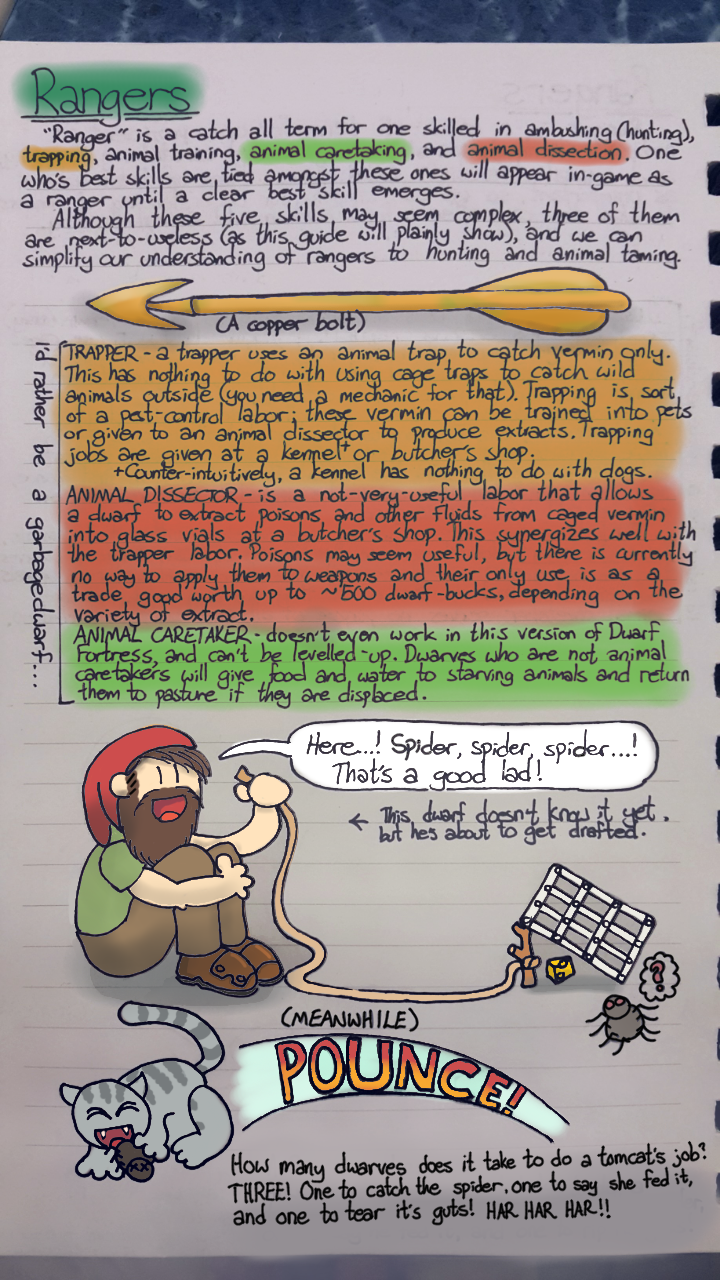 Rangers
"Ranger" is a catch all term for one skilled in ambushing (hunting),
trapping, animal training, animal caretaking, and animal dissection. One
who's best skills are tied amongst these ones will appear in-game as
a ranger until a clear best skill emerges.
Although these five skills may seem complex, three of them
are next-to-useless (as this guide will plainly show), and we can
simplify our understanding of rangers to hunting and animal taming.
(A copper bolt)
I'd rather be a garbagedwarf...
TRAPPER - a trapper uses an animal trap to catch vermin only.
This has nothing to do with using cage traps to catch wild
animals outside (you need a mechanic for that). Trapping is sort
of a pest-control labor; these vermin can be trained into pets
or given to an animal dissector to produce extracts. Trapping
jobs are given at a kennel+ or butcher's shop.
+Counter-intuitively, a kennel has nothing to do with dogs.
ANIMAL DISSECTOR - is a not-very-useful labor that allows
a dwarf to extract poisons and other fluids from caged vermin
into glass vials at a butcher's shop. This synergizes well with
the trapper labor. Poisons may seem useful, but there is currently
no way to apply them to weapons and their only use is as a
trade good worth up to ~500 dwarf-bucks, depending on the
variety of extract.
ANIMAL CARETAKER - doesn't even work in this version of Dwarf
Fortress, and can't be levelled-up. Dwarves who are not animal
caretakers will give food and water to starving animals and return
them to pasture if they are displaced.
Here...! Spider, spider, spider...!
That's a good lad!
← This dwarf doesn't know it yet,
but he's about to get drafted.
?
(MEANWHILE)
POUNCE!
How many dwarves does it take to do a tomcat's job?
THREE! One to catch the spider, one to say she fed it,
and one to tear it's guts! HAR HAR HAR!!